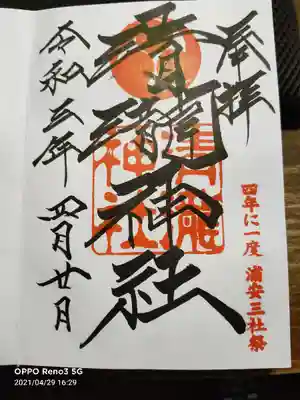 奉拝
四年に一度 浦安三社祭
清瀧神社
清瀧
神社
令和三年 四月廿日
OPPO Reno3 5G
2021/04/29 16:29